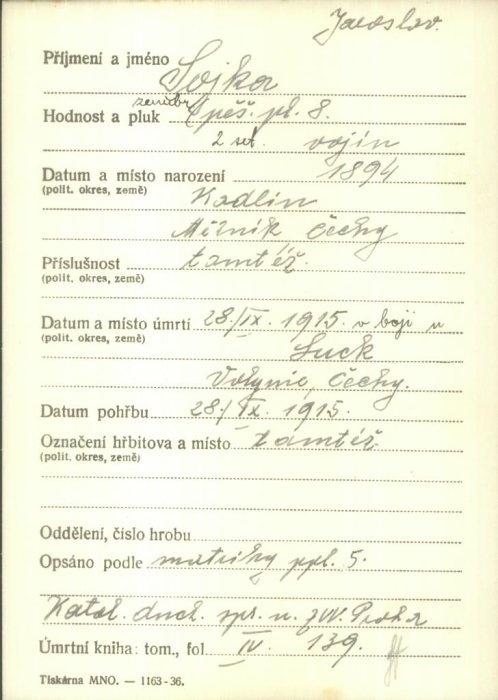 Jaroslav.
Příjmení a jméno Sojka
zeměbr.
Hodnost a pluk pěš. pl. 8.
2 set. vojín
Datum a místo narození 1894
(polit. okres, země) Kadlín
Mělník Čechy
Příslušnost tamtéž.
(polit. okres, země)
Datum a místo úmrtí 28./IX. 1915. v boji u
(polit. okres, země) Luck
Volynie, Čechy.
Datum pohřbu 28./IX. 1915.
Označení hřbitova a místo tamtéž
(polit. okres, země)
Oddělení, číslo hrobu
Opsáno podle matriky ppl. 5.
Katol. duch. spr. u. ZVV. Praha
Úmrtní kniha: tom., fol. IV. 139.
Tiskárna MNO. — 1163-36.